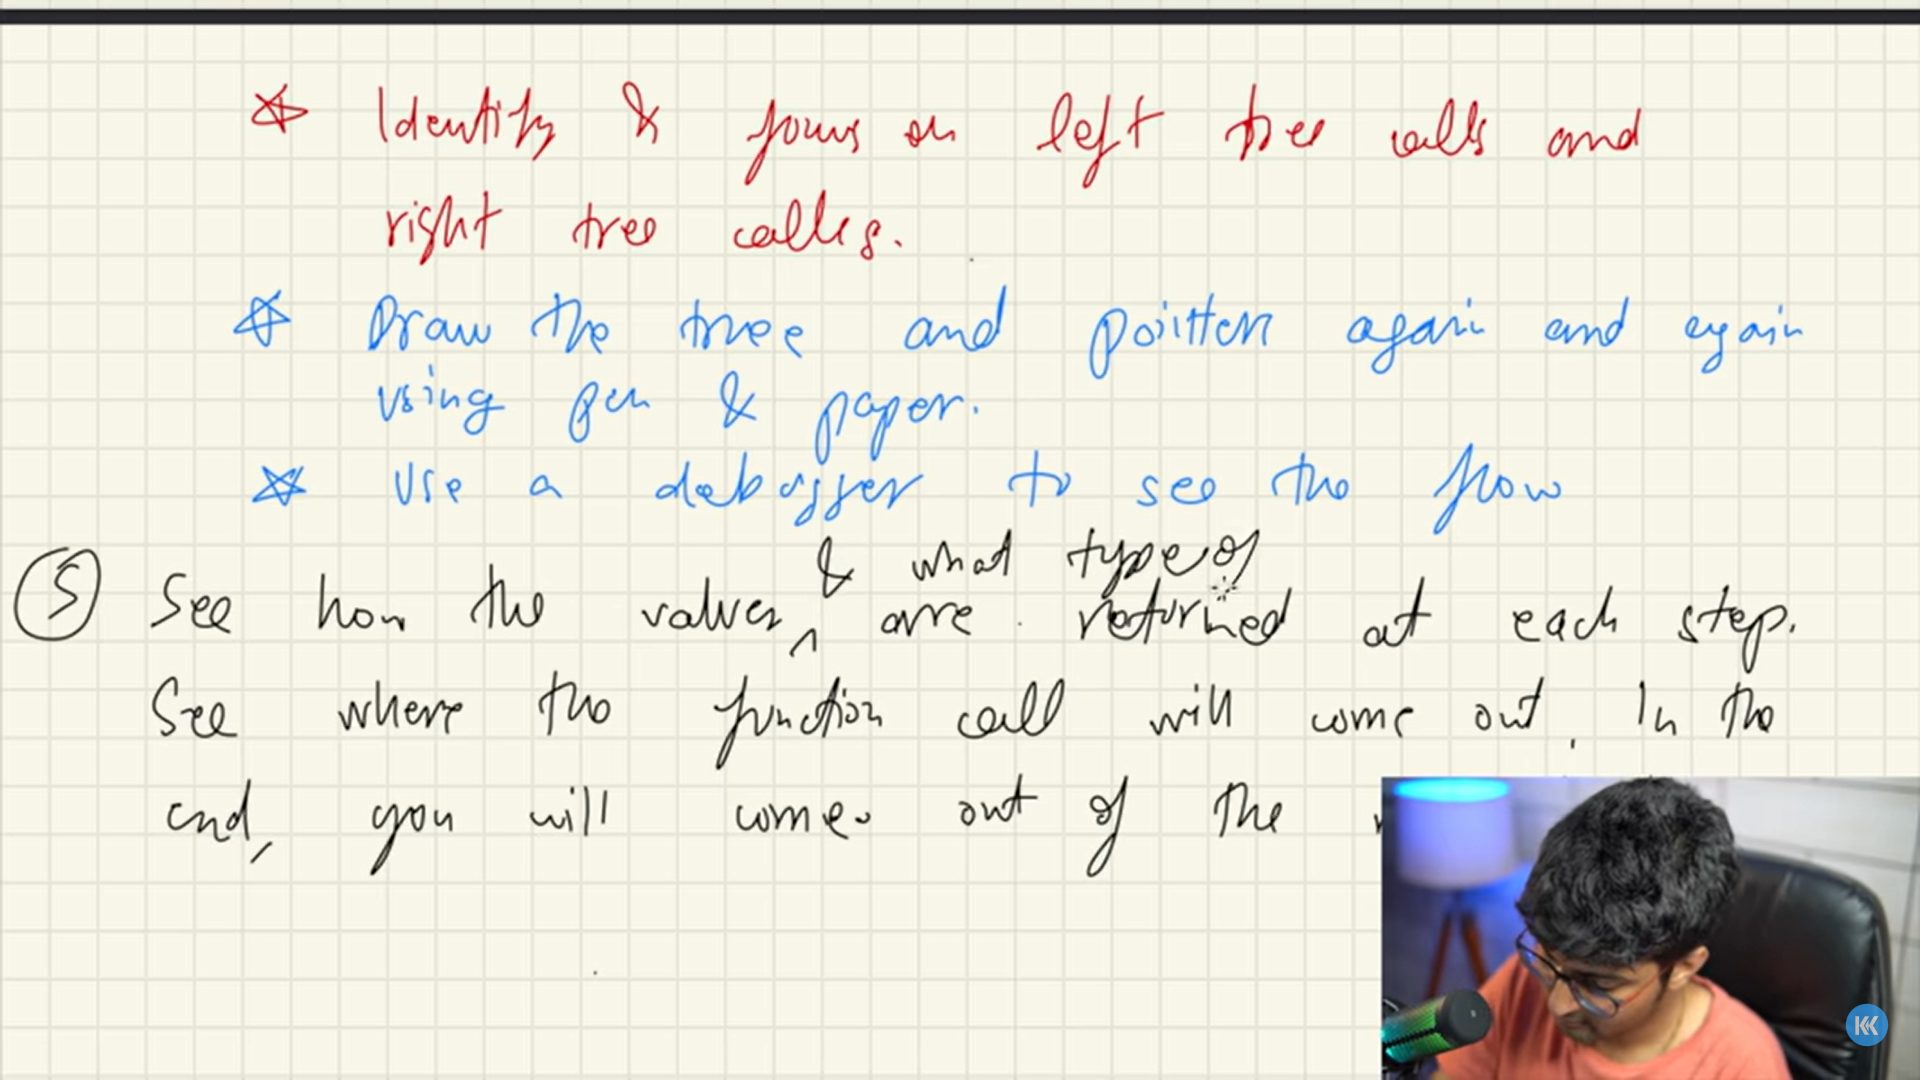 ☆ Identify & focus on left tree calls and
right tree calls.
☆ Draw the tree and pointers again and again
using pen & paper.
☆ Use a debugger to see the flow
& what type of
⑤ See how the values ^ are returned at each step.
See where the function call will come out. In the
end, you will come out of the
KK